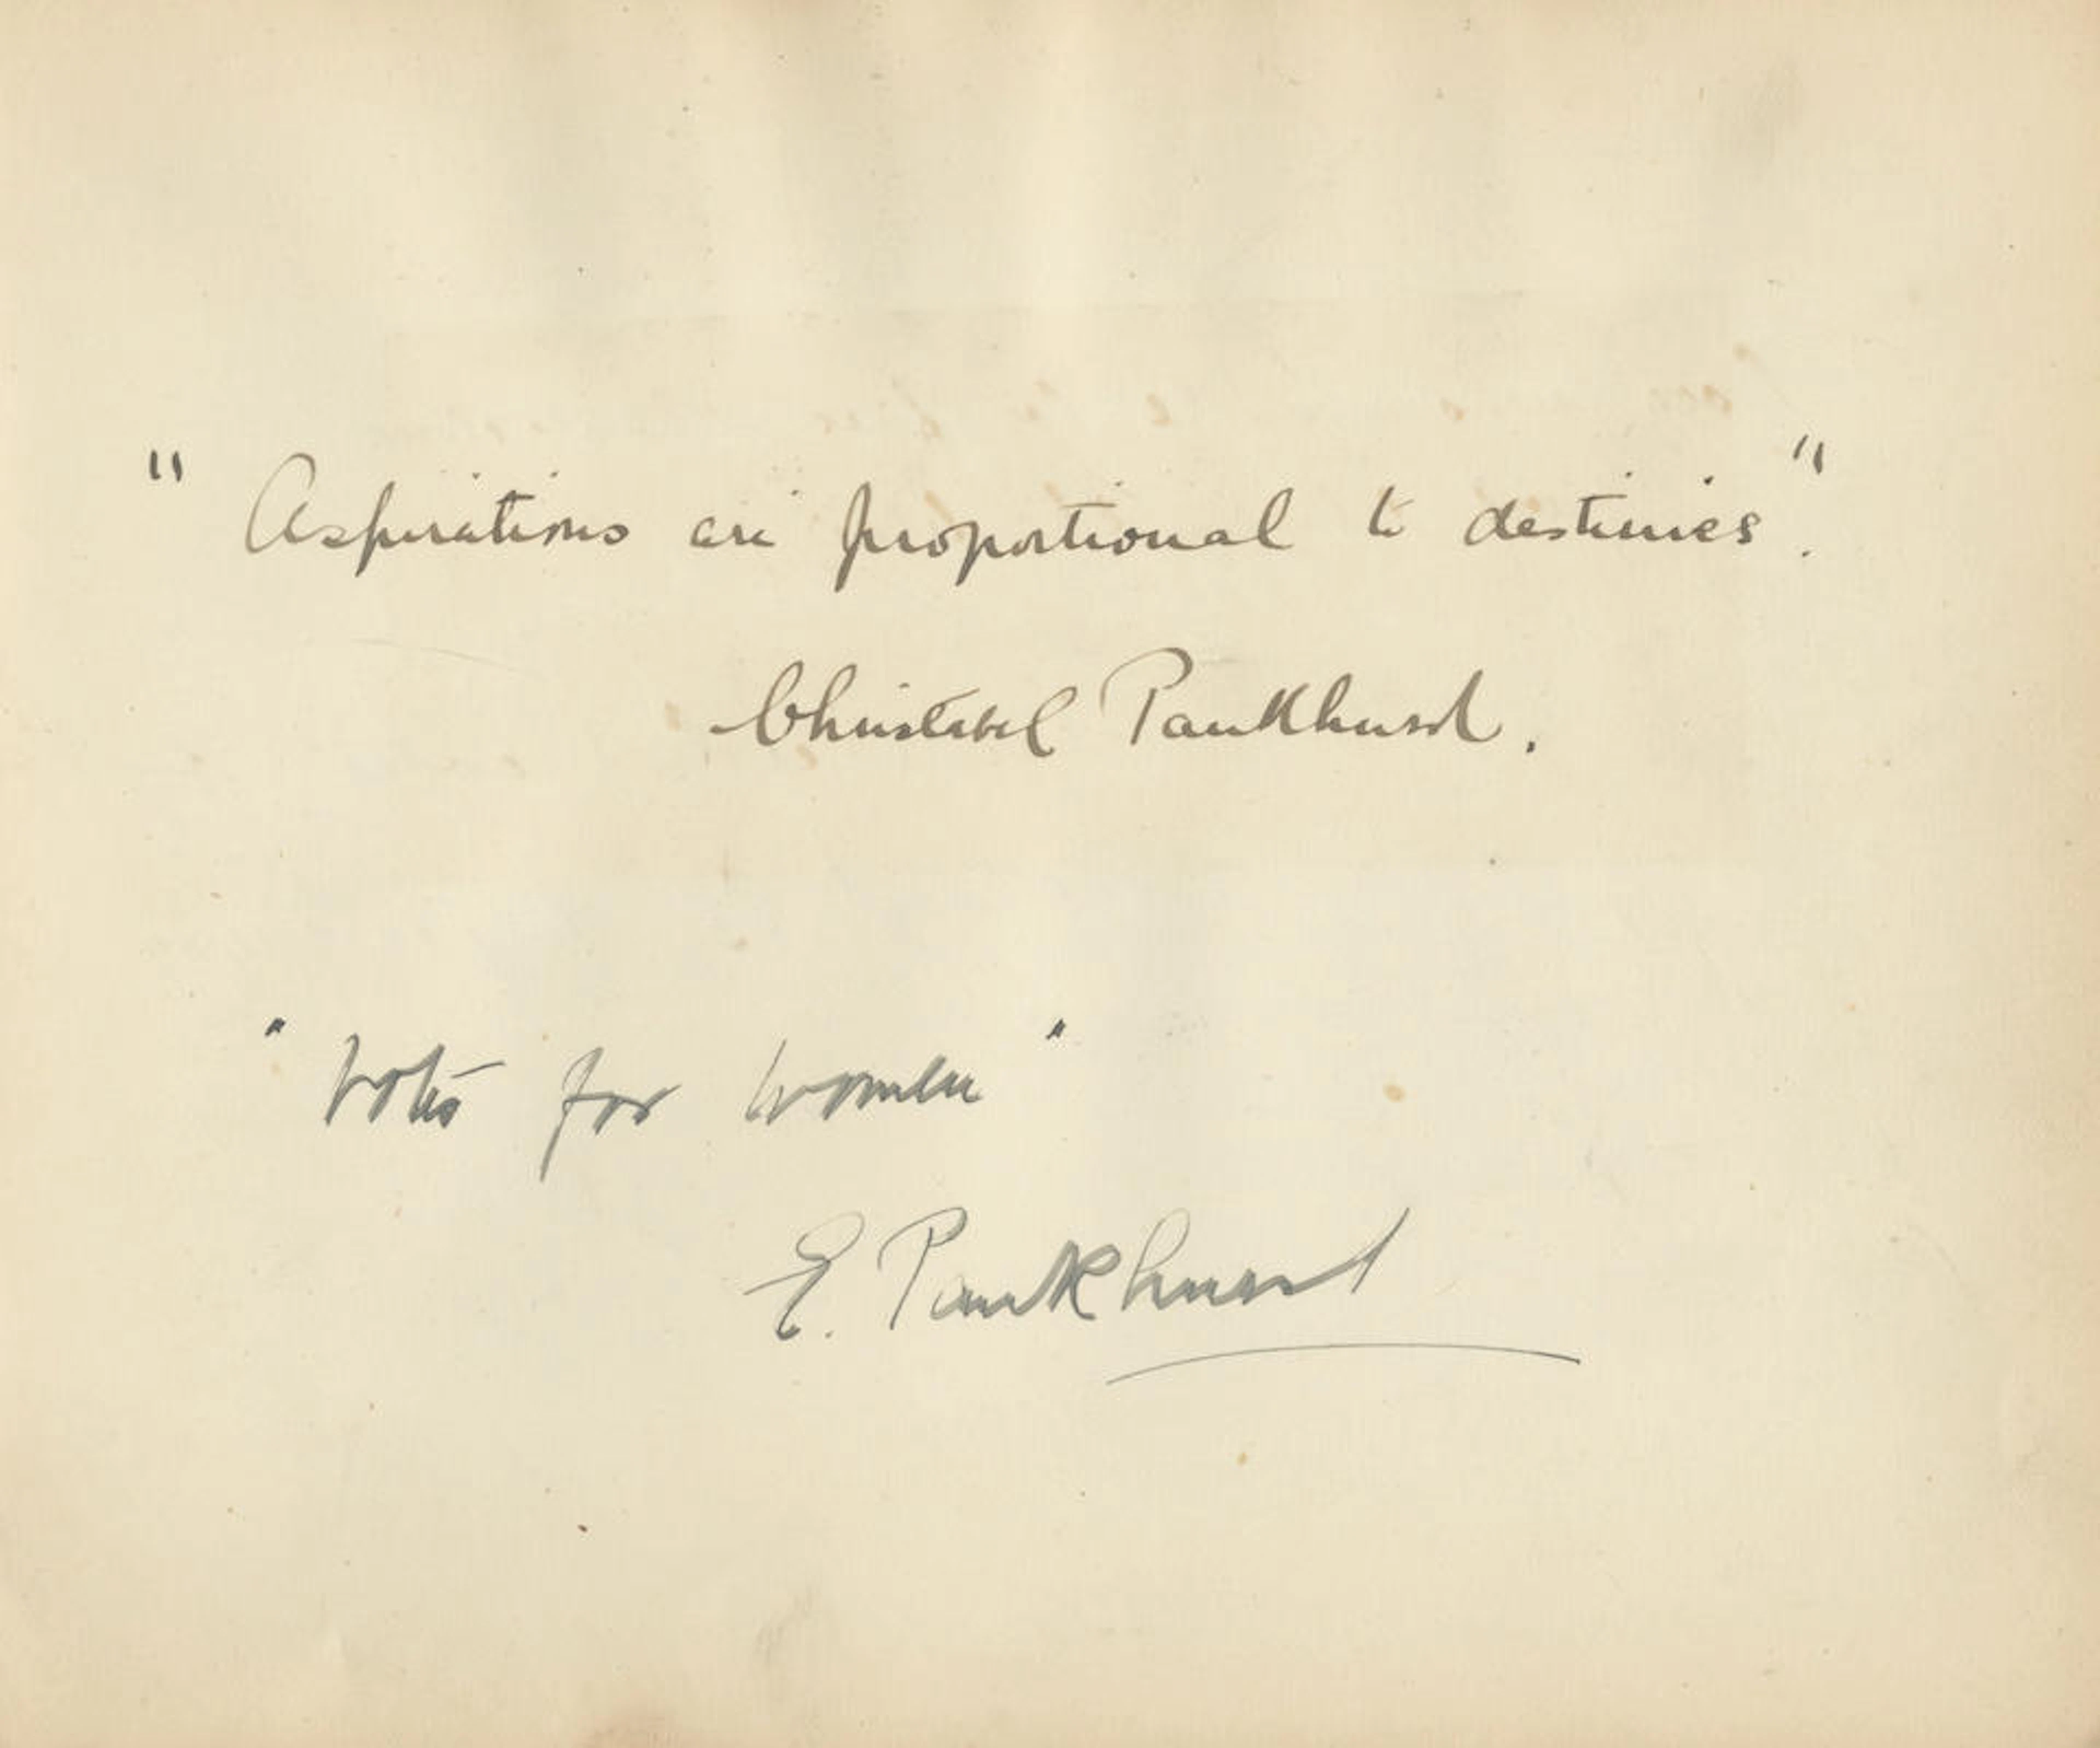 "Aspirations are proportional to destinies".
Christabel Pankhurst.
"Votes for Women"
E. Pankhurst